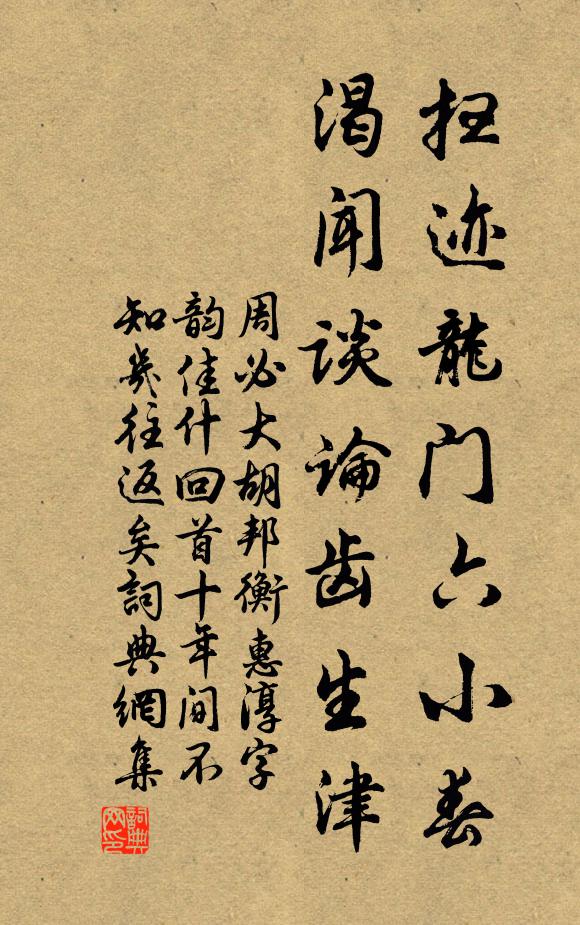 扫迹龍门六小春
渴闻谈論齿生津
周必大胡邦衡惠淳字
韵佳什回首十年间不
知幾往返矣詞典網集
詞典
网印